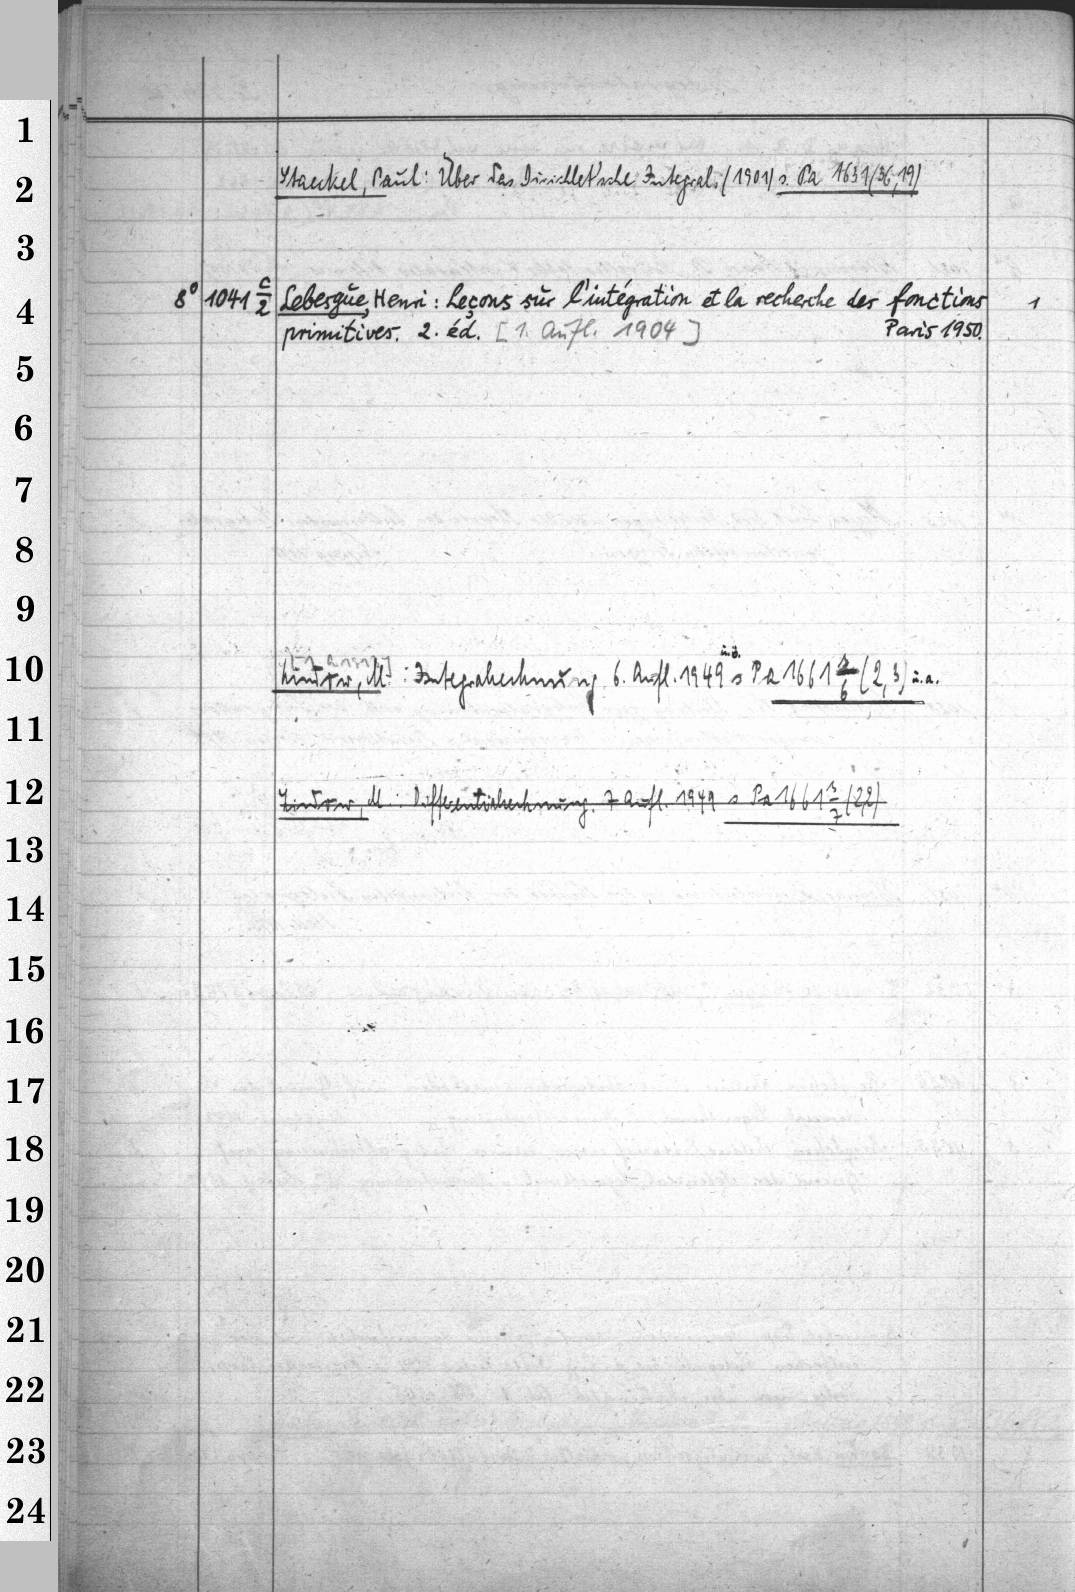 1
2 Staeckel, Paul: Über das Dirichlet'sche Integral. (1901) s. Pa 1631 (36,19)
3
4 8° 1041 c/2 Lebesgue, Henri: Leçons sur l'intégration et la recherche des fonctions 1
primitives. 2. éd. [1. Aufl. 1904] Paris 1950.
5
6
7
8
9
10 Lindow, M.: Integralrechnung 6. Aufl. 1949 s Pa 1661 /6 (2,3) u.a.
11
12 Lindow, M.: Differentialrechnung. 7 Aufl. 1949 s Pa 1661 /7 (2,2)
13
14
15
16
17
18
19
20
21
22
23
24